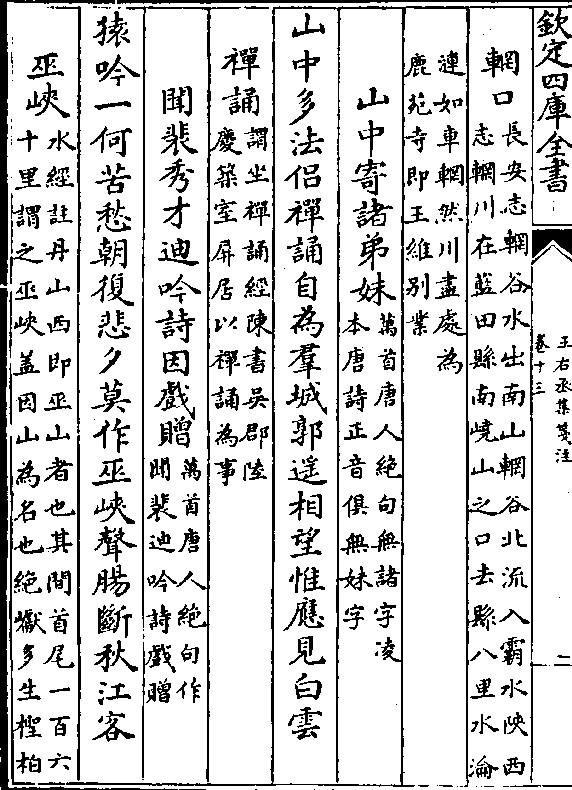 欽定四庫全書
王右丞集箋注
卷十三
二
輞口長安志輞谷水出南山輞谷北流入霸水陜西
志輞川在藍田縣南嶢山之口去縣八里水淪
漣如車輞然川盡處為
鹿苑寺即王維别業
山中寄諸弟妹萬首唐人絶句無諸字凌
本唐詩正音俱無妹字
山中多法侣禪誦自為羣城郭遥相望惟應見白雲
禪誦謂坐禪誦經陳書吳郡陸
慶築室屏居以禪誦為事
聞裴秀才迪吟詩因戲贈萬首唐人絶句作
聞裴迪吟詩戲贈
猿吟一何苦愁朝復悲夕莫作巫峽聲腸斷秋江客
巫峽水經註丹山西即巫山者也其間首尾一百六
十里謂之巫峽盖因山為名也絶巘多生檉柏